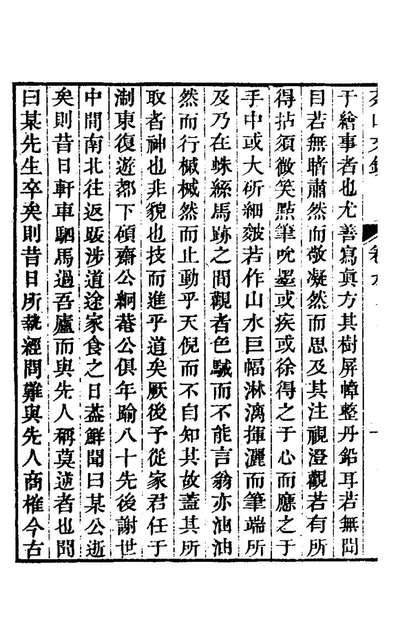 于繪事者也尤善寫眞方其樹屏幛整丹鉛耳若無聞
目若無睹肅然而敬凝然而思及其注視澄觀若有所
得拈須微笑點筆吮墨或疾或徐得之于心而應之于
手中或大斫細皴若作山水巨幅淋漓揮灑而筆端所
及乃在蛛絲馬跡之間觀者色駴而不能言翁亦油油
然而行棫棫然而止動乎天倪而不自知其故蓋其所
取者神也非貌也技而進乎道矣厥後予從家君任于
淛東復遊都下碩齋公絅菴公俱年踰八十先後謝世
中間南北往返跋涉道途家食之日葢鮮聞曰某公逝
矣則昔日軒車駟馬過吾廬而與先人稱莫逆者也問
曰某先生卒矣則昔日所執經問難與先人商榷今古